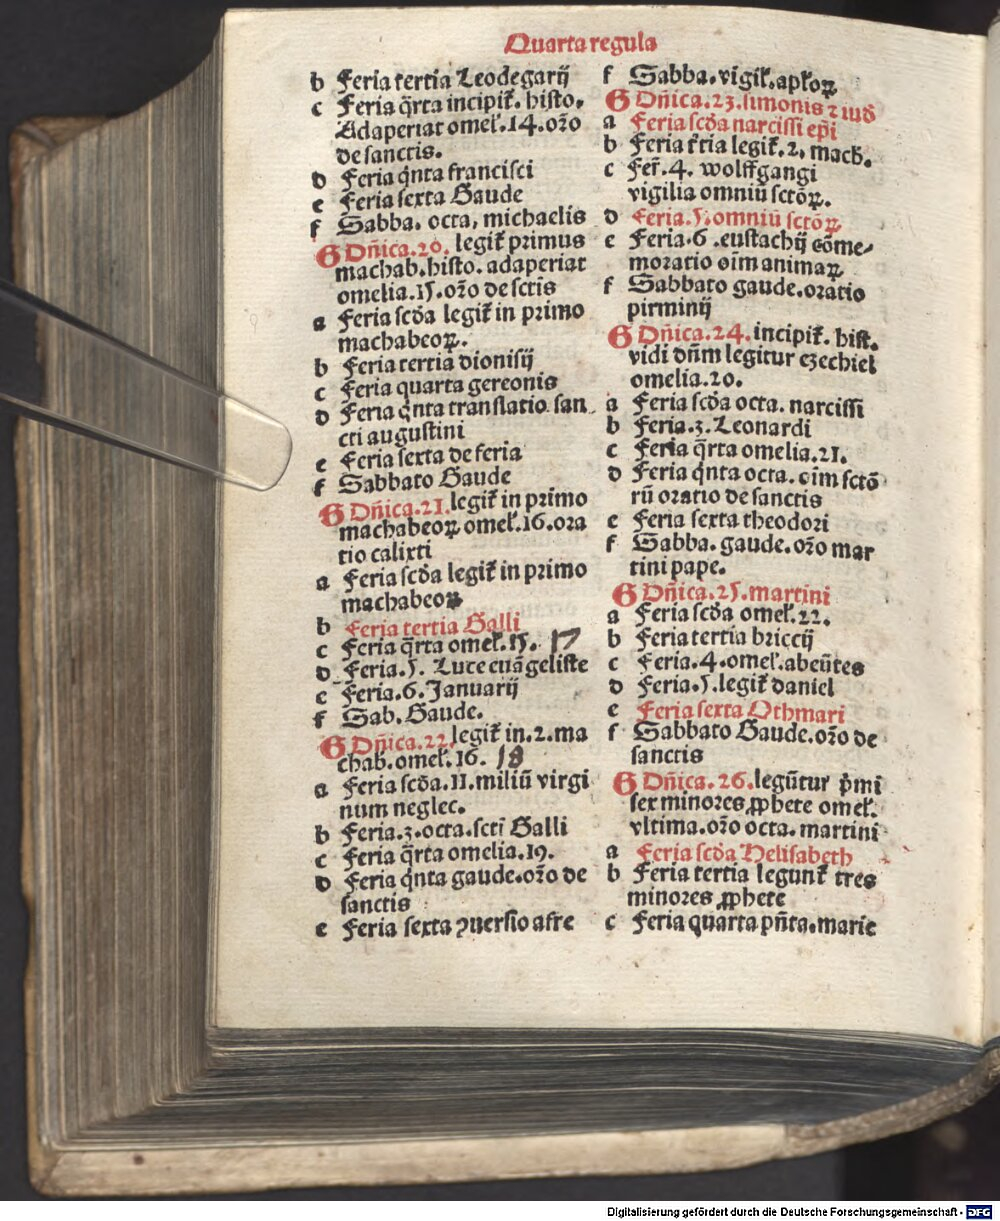 Quarta regula
b Feria tertia Leodegarij
c Feria q̄rta incipit᷑. histo.
Adaperiat omeł.14.oꝛo
de sanctis.
d Feria q̄nta francisci
e Feria sexta Gaude
f Sabba. octa, michaelis
G Dn̄ica.20. legit᷑ primus
machab.histo. adaperiat
omelia.15.oꝛo de sctis
a Feria scd̄a legit᷑ in primo
machabeoꝝ.
b Feria tertia dionisij
c Feria quarta gereonis
d Feria q̄nta translatio san
cti augustini
e Feria sexta de feria
f Sabbato Gaude
G Dn̄ica.21.legit᷑ in primo
machabeoꝝ omeł.16.ora
tio calixti
a Feria scd̄a legit᷑ in primo
machabeoꝝ
b Feria tertia Galli
c Feria q̄rta omeł.15. 17
d Feria.5. Luce euāgeliste
e Feria.6.Januarij
f Sab. Gaude.
G Dn̄ica.22.legit᷑ in.2.ma
chab.omeł.16. 18
a Feria scd̄a.11.miliū virgi
num neglec.
b Feria.3.octa.scti Galli
c Feria q̄rta omelia.19.
d Feria q̄nta gaude.oꝛo de
sanctis
e Feria sexta ꝯuersio afre
f Sabba.vigił.apłoꝝ
G Dn̄ica.23.simonis ⁊ iud̄
a Feria scd̄a narcissi ep̄i
b Feria t᷑tia legit᷑.2. mach.
c Fer᷑.4. wolffgangi
vigilia omniū sctōꝝ.
d Feria.5.omniū sctōꝝ
e Feria.6 .eustachij cōme-
moratio oīm animaꝝ
f Sabbato gaude.oratio
pirminij
G Dn̄ica.24.incipit᷑. hist.
vidi dn̄m legitur ezechiel
omelia.20.
a Feria scd̄a octa. narcissi
b Feria.3.Leonardi
c Feria q̄rta omelia.21.
d Feria q̄nta octa. oīm sctō
rū oratio de sanctis
e Feria sexta theodori
f Sabba. gaude.oꝛo mar
tini pape.
G Dn̄ica.25.martini
a Feria scd̄a omeł.22.
b Feria tertia briccij
c Feria.4.omeł.abeūtes
d Feria.5.legit᷑ daniel
e Feria sexta Othmari
f Sabbato Gaude.oꝛo de
sanctis
G Dn̄ica.26.legūtur p̄mi
sex minores ꝓphete omeł.
vltima.oꝛo octa. martini
a Feria scd̄a Helisabeth
b Feria tertia legunt᷑ tres
minores ꝓphete
c Feria quarta pn̄ta.marie
Digitalisierung gefördert durch die Deutsche Forschungsgemeinschaft - DFG